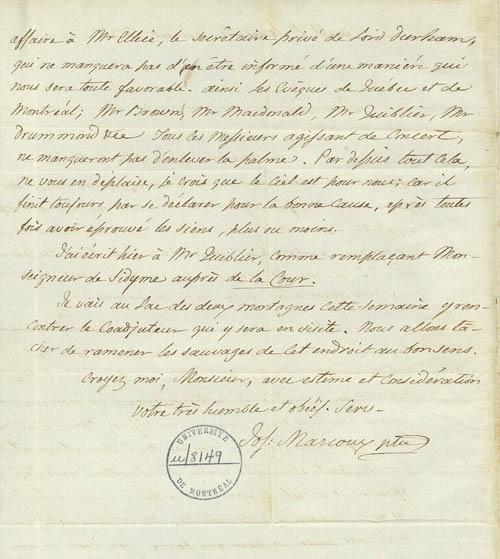 affaire à Mr Ellice, le secrêtaire privé de Lord Durham,
qui ne manquera pas d'en être informé d'une manière qui
nous sera toute favorable. ainsi les Evêques de Quebec et de
Montréal; Mr Brown, Mr Macdonald, Mr Quiblier, Mr
Drummond &ce tous ces Messieurs agissant de Concert,
ne manqueront pas d'enlever la palme. Par dessus tout cela,
ne vous en deplaise, je crois que le Ciel est pour nous; car il
finit toujours par se déclarer pour la bonne Cause, après toutes
fois avoir éprouvé les siens, plus ou moins.
J'ai écrit hier à Mr Quiblier, comme remplaçant Mon-
seigneur de Sidyme auprès de la Cour.
Je vais au Lac des deux montagnes cette semaine y ren-
contrer le Coadjuteur qui y sera en visite. Nous allons tâ-
cher de ramener les sauvages de cet endroit au bon sens.
Croyez moi, Monsieur, avec estime et Considération
Votre très humble et obéis. Serv-
Jos: Marcoux ptre
UNIVERSITÉ
u/8149
DE MONTRÉAL